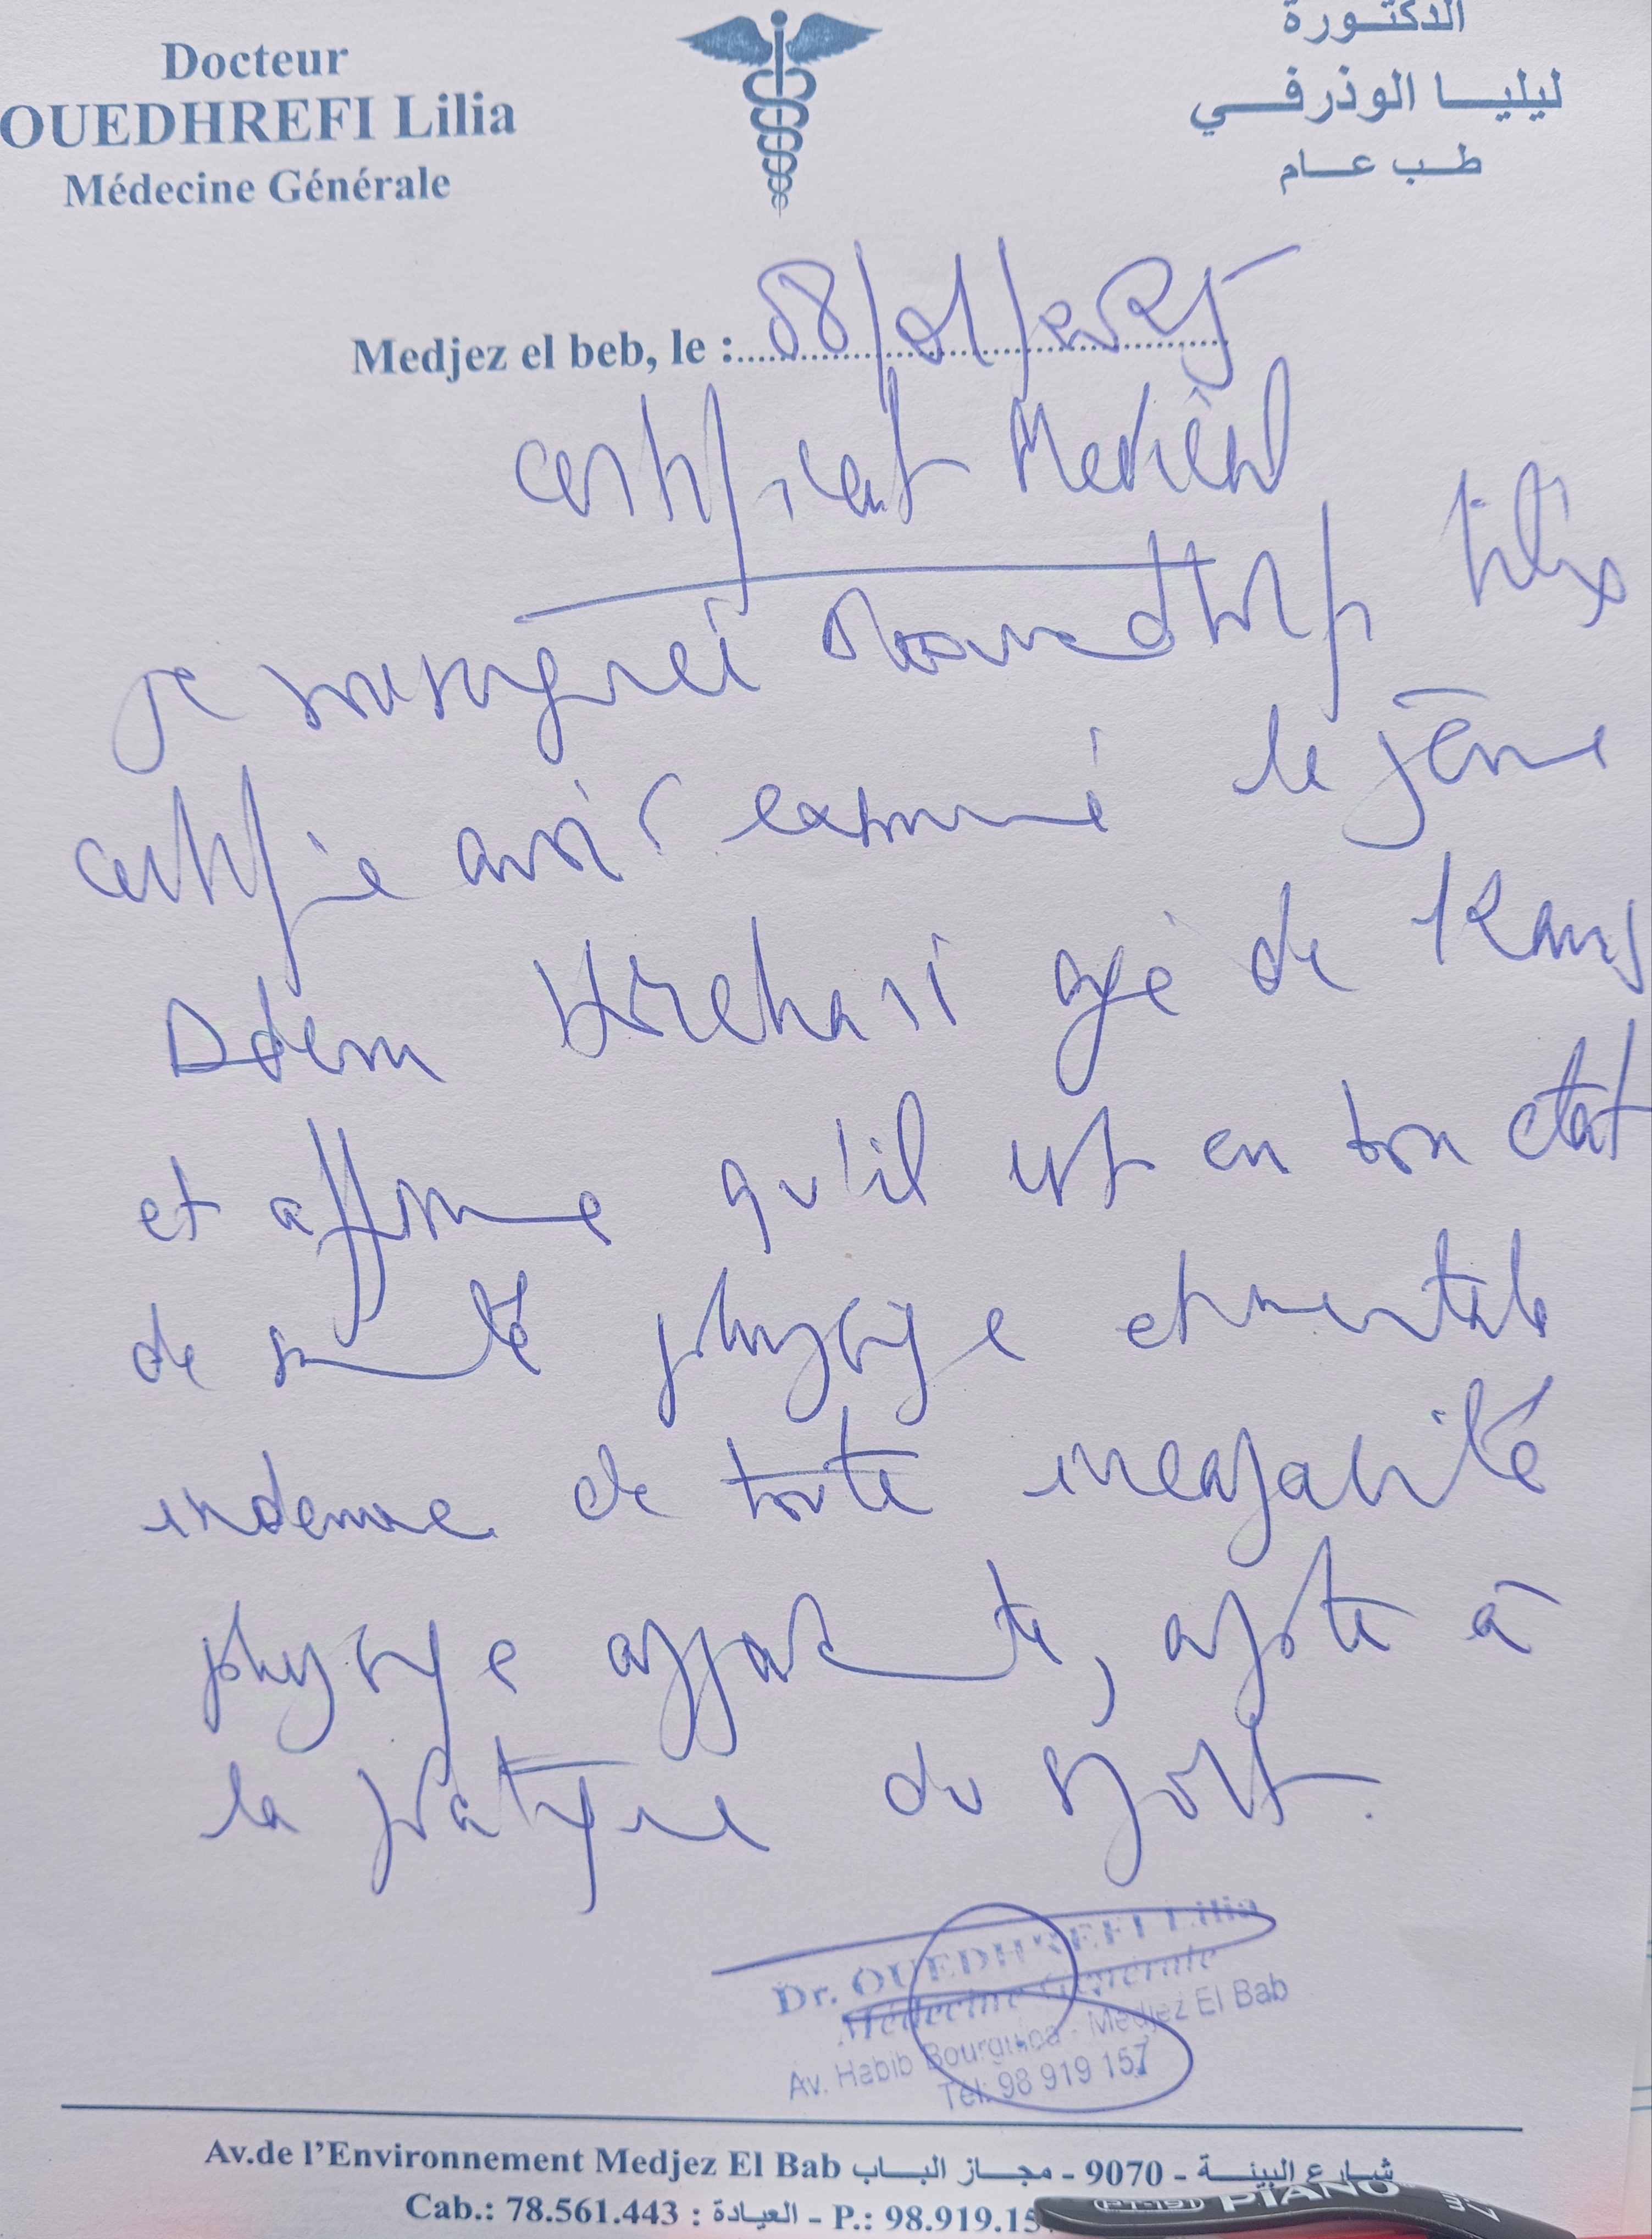 Docteur
OUEDHREFI Lilia
Médecine Générale
الدكتورة
ليليا الوذرفي
طب عام
Medjez el beb, le : 08/01/2025
Certificat Medical
Je soussigné Lilia
certifie avoir examiné le jeune
Adem agé de 12 ans
et affirme qu'il est en bon etat
de santé physique et mentale
indemne de toute incapacité
physique apparente, apte à
la pratique du sport.
Dr. OUEDHREFI Lilia
Médecine Générale
Av. Habib Bourguiba - Medjez El Bab
Tél: 98 919 157
Av.de l'Environnement Medjez El Bab شارع البيئة - 9070 - مجاز الباب
Cab.: 78.561.443 : العيادة - P.: 98.919.15
PT-191 PIANO